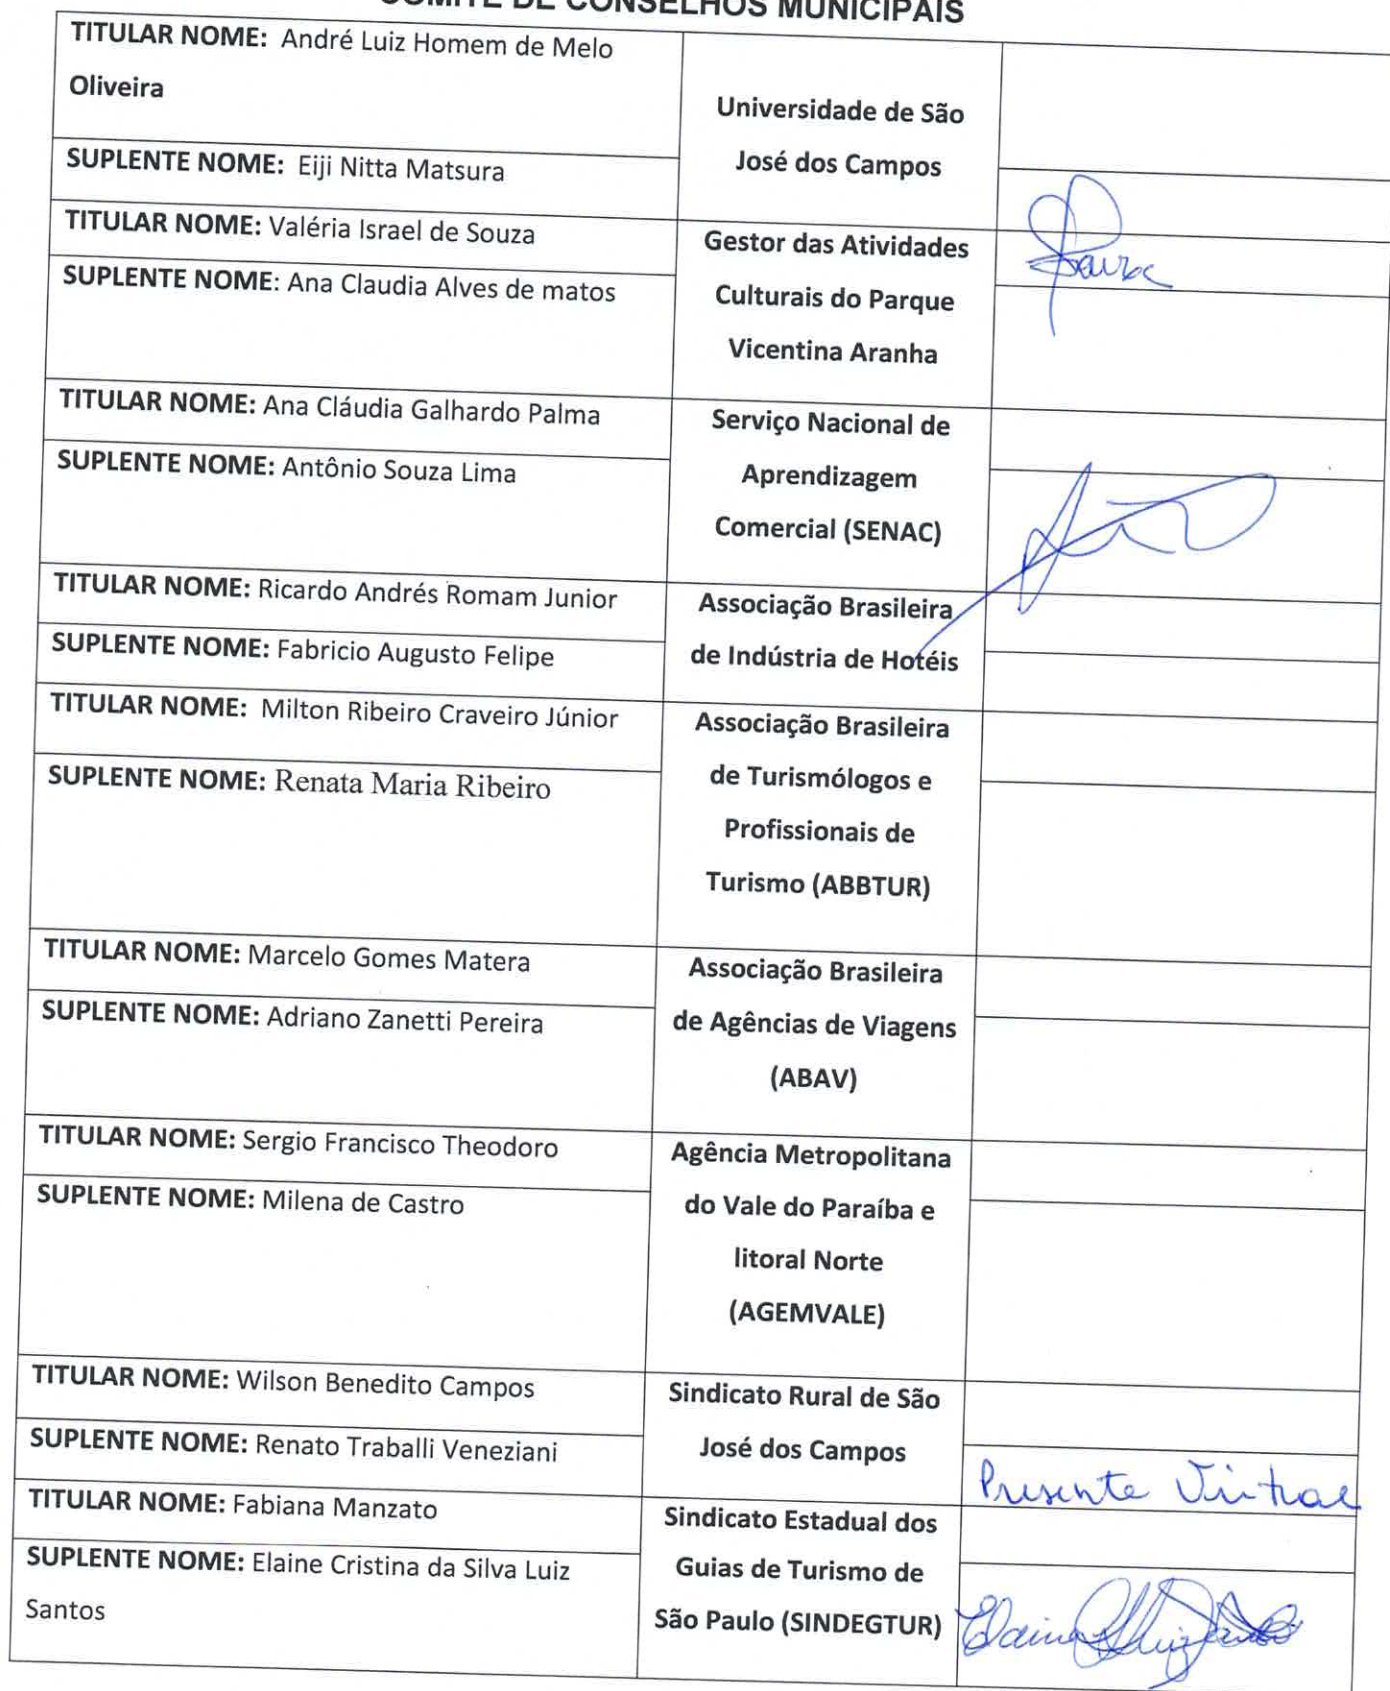 COMITÊ DE CONSELHOS MUNICIPAIS
TITULAR NOME: André Luiz Homem de Melo
Oliveira
Universidade de São
José dos Campos
SUPLENTE NOME: Eiji Nitta Matsura
TITULAR NOME: Valéria Israel de Souza
Gestor das Atividades
Culturais do Parque
Vicentina Aranha
SUPLENTE NOME: Ana Claudia Alves de matos
TITULAR NOME: Ana Cláudia Galhardo Palma
Serviço Nacional de
Aprendizagem
Comercial (SENAC)
SUPLENTE NOME: Antônio Souza Lima
TITULAR NOME: Ricardo Andrés Romam Junior
Associação Brasileira
de Indústria de Hotéis
SUPLENTE NOME: Fabricio Augusto Felipe
TITULAR NOME: Milton Ribeiro Craveiro Júnior
Associação Brasileira
de Turismólogos e
Profissionais de
Turismo (ABBTUR)
SUPLENTE NOME: Renata Maria Ribeiro
TITULAR NOME: Marcelo Gomes Matera
Associação Brasileira
de Agências de Viagens
(ABAV)
SUPLENTE NOME: Adriano Zanetti Pereira
TITULAR NOME: Sergio Francisco Theodoro
Agência Metropolitana
do Vale do Paraíba e
litoral Norte
(AGEMVALE)
SUPLENTE NOME: Milena de Castro
TITULAR NOME: Wilson Benedito Campos
Sindicato Rural de São
José dos Campos
SUPLENTE NOME: Renato Traballi Veneziani
Presente Virtual
TITULAR NOME: Fabiana Manzato
Sindicato Estadual dos
Guias de Turismo de
São Paulo (SINDEGTUR)
SUPLENTE NOME: Elaine Cristina da Silva Luiz
Santos